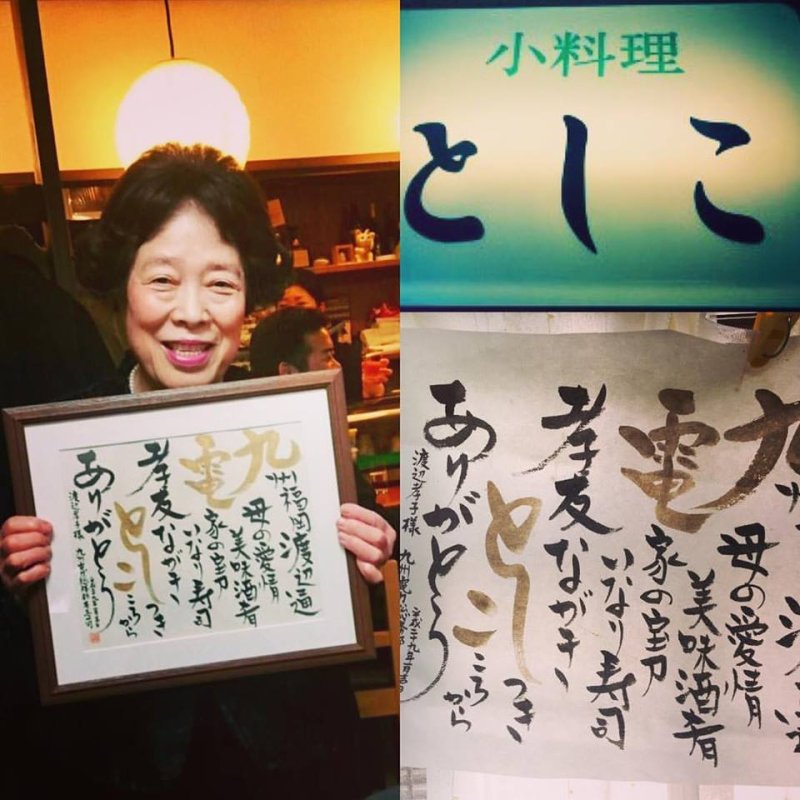 小料理
としこ
九州福岡渡辺通
母の愛情
美味酒肴
電家の宝刀
いなり寿司
孝友ながき
としつき
こころから
ありがとう
渡辺孝子様
母の愛情
美味酒肴
電家の宝刀
いなり寿司
孝友ながき
としつき
こころから
ありがとう
渡辺孝子様
平成二十九年